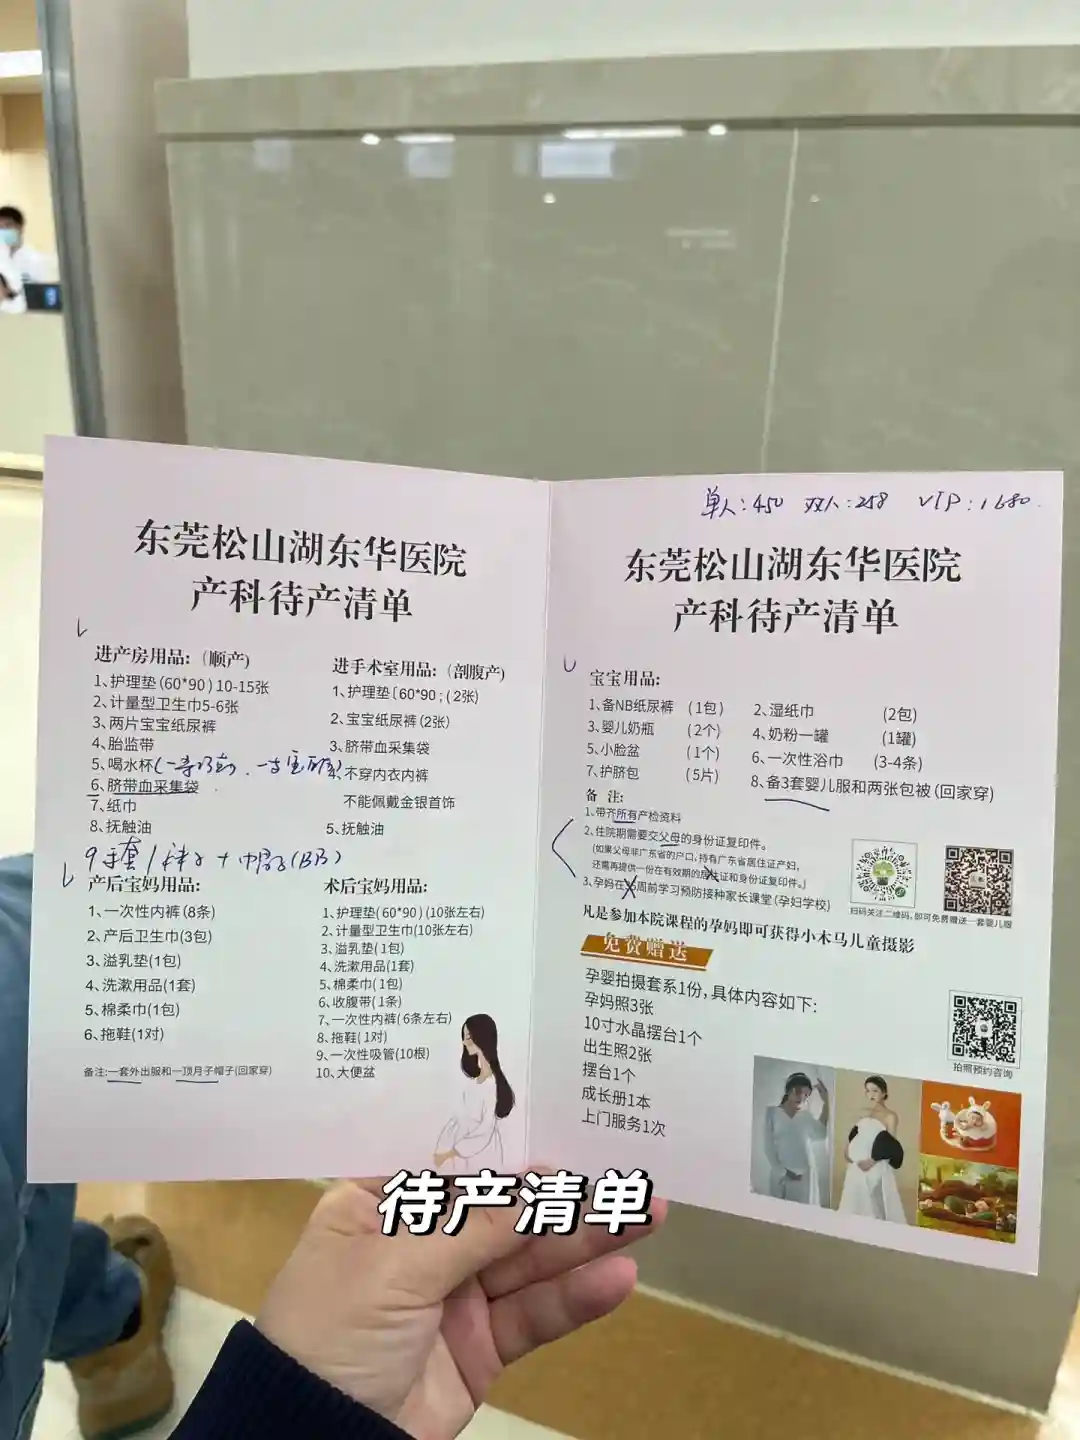 东莞松山湖东华医院
产科待产清单
进产房用品：（顺产）
1、护理垫（60*90）10-15张
2、计量型卫生巾5-6张
3、两片宝宝纸尿裤
4、胎监带
5、喝水杯
6、脐带血采集袋
7、纸巾
8、抚触油
进手术室用品：（剖腹产）
1、护理垫〔60*90；（2张）
2、宝宝纸尿裤（2张）
3、脐带血采集袋
4、不穿内衣内裤
不能佩戴金银首饰
5、抚触油
产后宝妈用品：
1、一次性内裤（8条）
2、产后卫生巾（3包）
3、溢乳垫（1包）
4、洗漱用品（1套）
5、棉柔巾（1包）
6、拖鞋（1对）
备注：一套外出服和一顶月子帽子（回家穿）
术后宝妈用品：
1、护理垫（60*90）（10张左右）
2、计量型卫生巾（10张左右）
3、溢乳垫（1包）
4、洗漱用品（1套）
5、棉柔巾（1包）
6、收腹带（1条）
7、一次性内裤（6条左右）
8、拖鞋（1对）
9、一次性吸管（10根）
10、大便盆
单人：450 双人：258 VIP：1680.
东莞松山湖东华医院
产科待产清单
宝宝用品：
1、备NB纸尿裤 （1包） 2、湿纸巾 （2包）
3、婴儿奶瓶 （2个） 4、奶粉一罐 （1罐）
5、小脸盆 （1个） 6、一次性浴巾 （3-4条）
7、护脐包 （5片） 8、备3套婴儿服和两张包被（回家穿）
备 注：
1、带齐所有产检资料
2、住院期需要交父母的身份证复印件。
（如果父母非广东省的户口，持有广东省居住证产妇，
还需再提供一份在有效期的居住证和身份证复印件。」
3、孕妈在 周前学习预防接种家长课堂（孕妇学校）
扫码关注二维码，即可免费赠送一套婴儿服
凡是参加本院课程的孕妈即可获得小木马儿童摄影
免费赠送
孕婴拍摄套系1份，具体内容如下：
孕妈照3张
10寸水晶摆台1个
出生照2张
摆台1个
成长册1本
上门服务1次
拍照预约咨询
待产清单